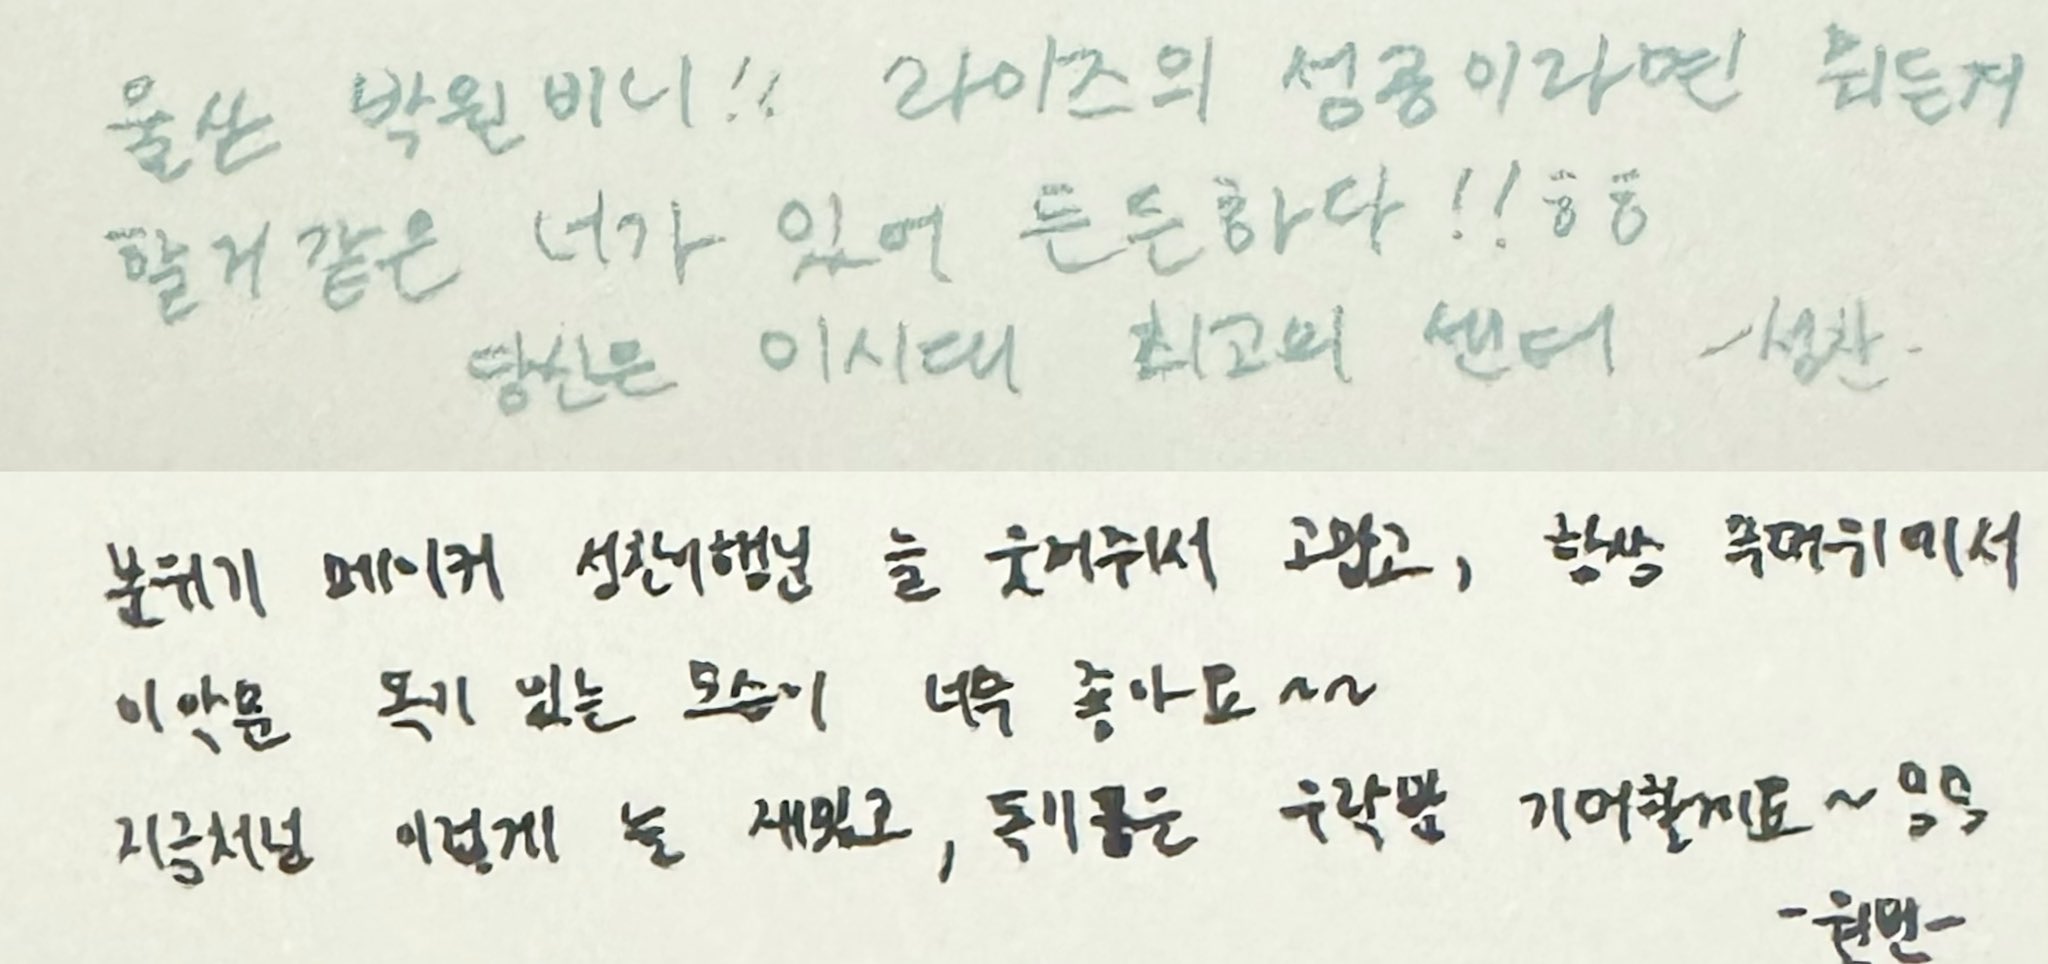 울산 박원비니!! 라이즈의 성공이라면 뭐든지
할거 같은 너가 있어 든든하다!! ㅎㅎ
당신은 이시대 최고의 센터 -성찬-
분위기 메이커 성찬이행님 늘 웃겨줘서 고맙고, 항상
이 악문 독기 있는 모습이 너무 좋아요~~
지금처럼 이렇게 늘 재밌고, 독기품은 우락밤 기억할게요~
-원빈-